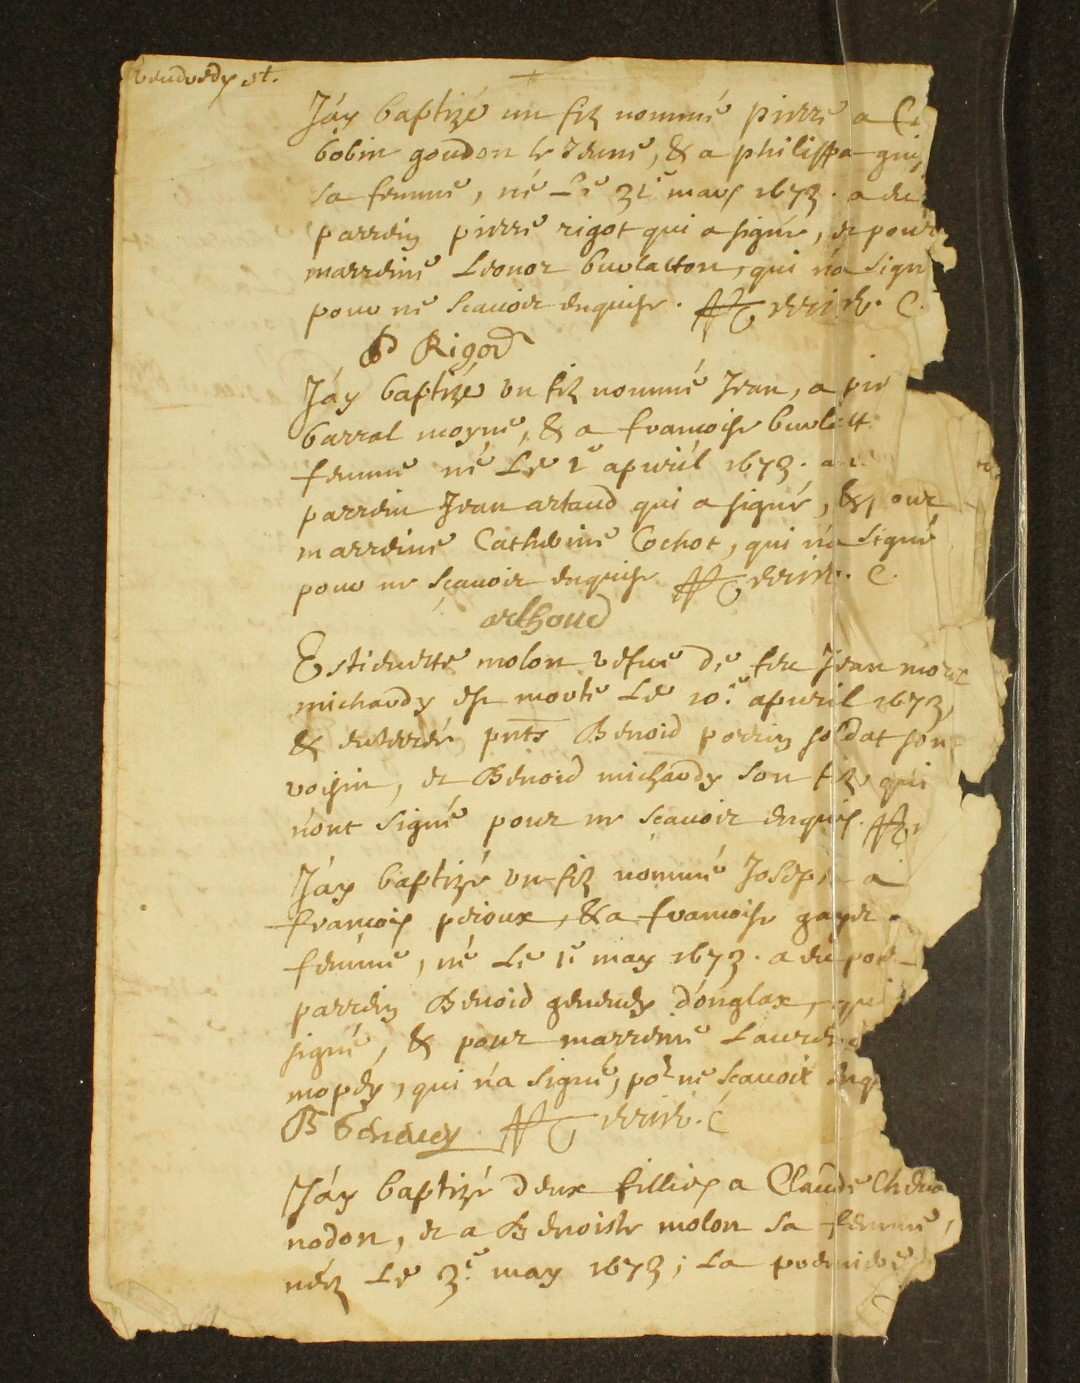 vendredy st.
Jáy baptizé un filz nommé pierre a
bobin goudon le Jeune, & a philippa
sa femme, né Le 31e mars 1673. a eu
parrein pierre rigot qui a signé, et pour
marreine Leonor burlatton, qui ná sign
pour ne scauoir enquise. C.
P Rigod
Jáy baptizé un filz nommé Jean, a pie
barral moyne, & a francoise burlatt
femme né Le 1e apuril 1673. a
parrein Jean artaud qui a signé, & pour
marreine Catherine Cochot, qui ná signé
pour ne scauoir enquise C.
arthoud
Estienette molon vefue de feu Jean
michaudy est morte Le 10.e apuril 1673,
& enterrée pnts Benoid perrin soldat son
voisin, et Benoid michaudy son filz qui
nónt signé pour ne scauoir enquis.
Jáy baptizé un filz nommé Joseph a
francois perioux, & a francoise gayet
femme, né Le 1e may 1673. a eu pour
parrein Benoid geneuey dónglax, qui
signé, & pour marreine
mopey, qui ná signé, por ne scauoir enq
B Geneuey C
Jáy baptizé deux fillies a Claude
nodon, et a Benoiste molon sa femme,
néez Le 3.e may 1673; La premiere